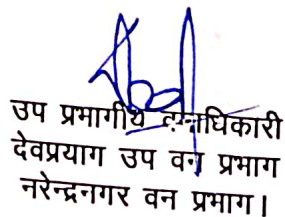 उप प्रभागीय वनाधिकारी
देवप्रयाग उप वन प्रभाग
नरेन्द्रनगर वन प्रभाग।